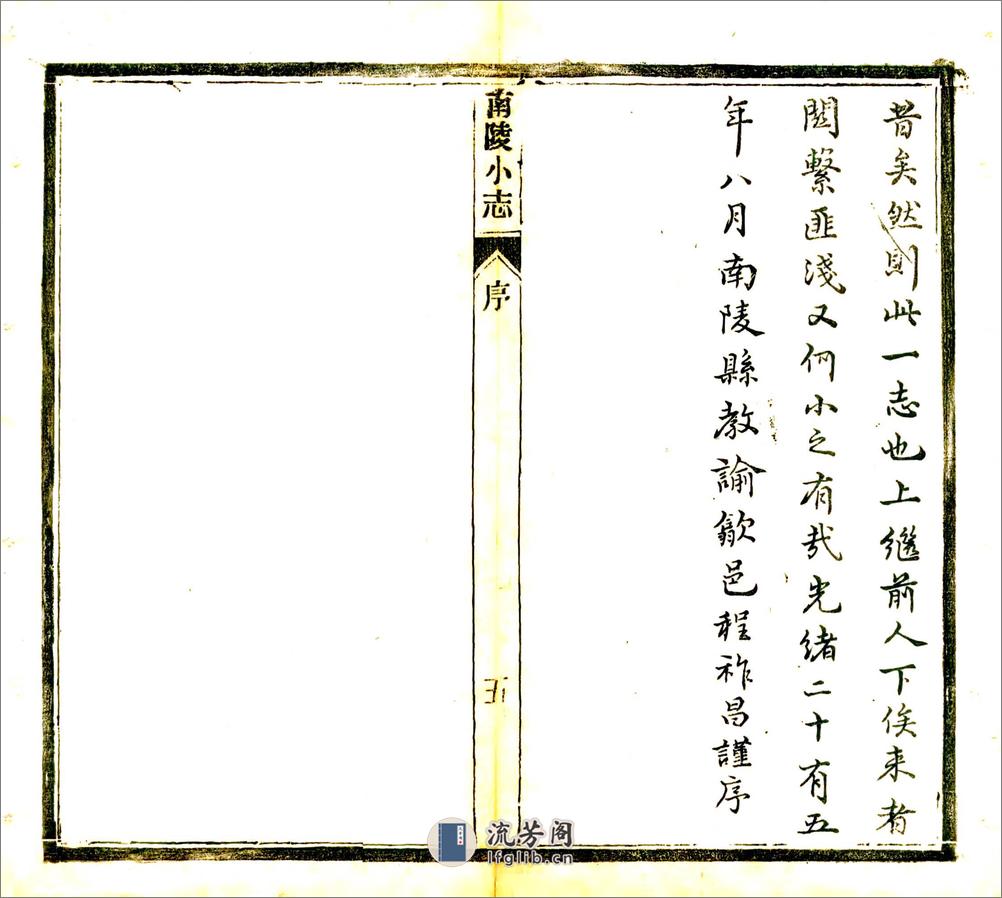 昔矣然則此一志也上繼前人下俟来者
関繫匪淺又何小之有哉光緒二十有五
年八月南陵縣教諭歙邑程祚昌謹序
南陵小志
序
五
流芳阁
lfglib.cn